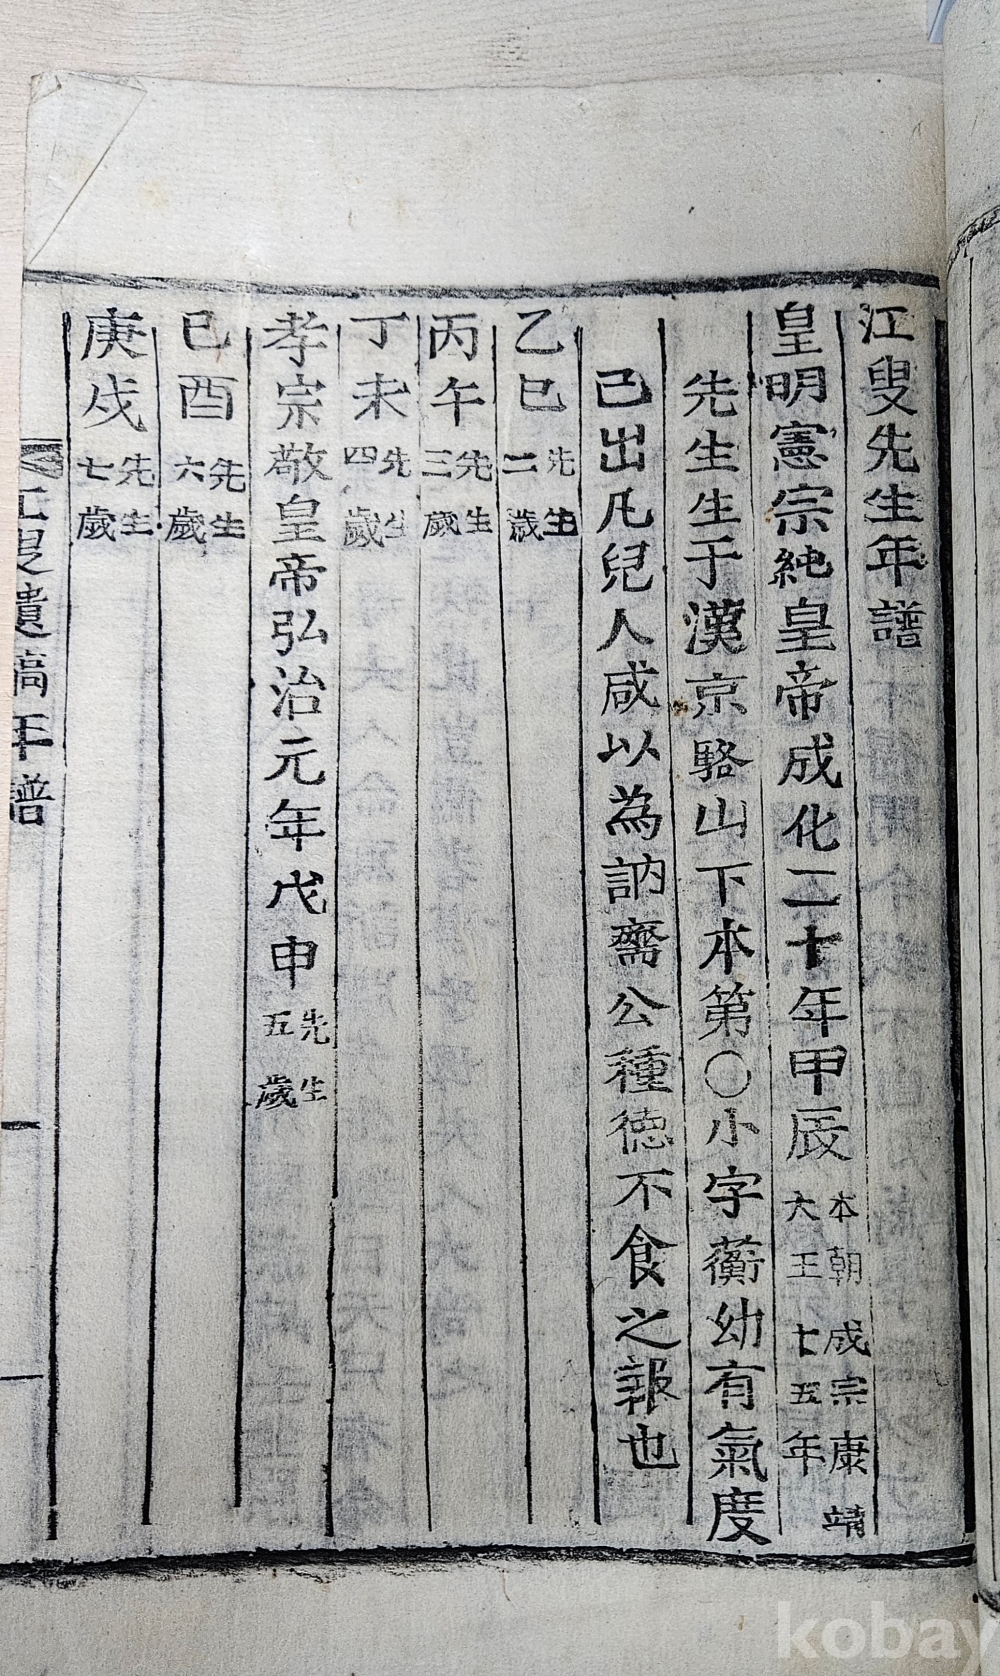 江叟先生年譜
皇明憲宗純皇帝成化二十年甲辰 本朝成宗康靖 大王七五年
先生生于漢京駱山下本第○小字蘅幼有氣度
已出凡兒人咸以為訥齋公種德不食之報也
乙巳 先生 二歲
丙午 先生 三歲
丁未 先生 四歲
孝宗敬皇帝弘治元年戊申 先生 五歲
已酉 先生 六歲
庚戌 先生 七歲
江叟遺稿年譜
kobay